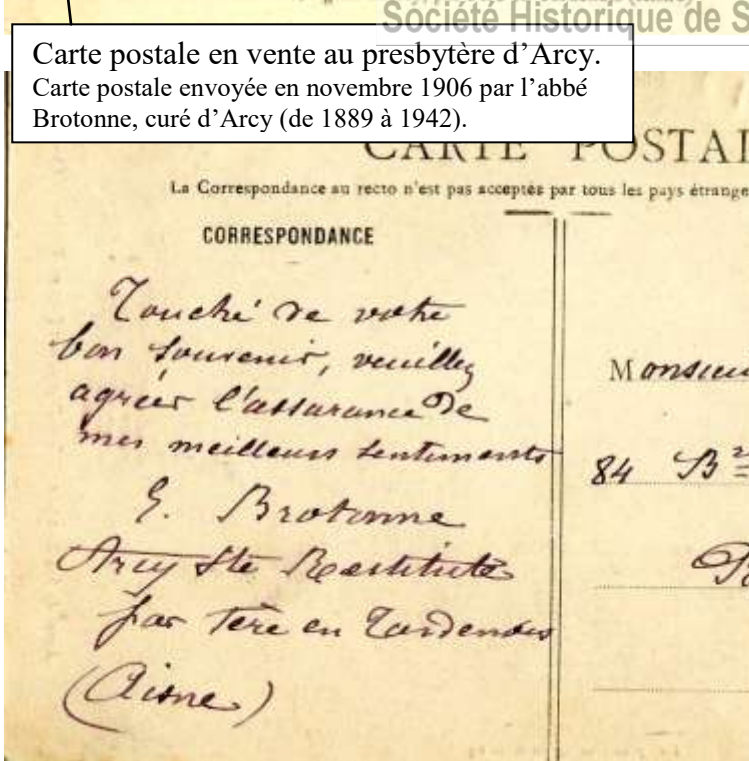 Société Historique de S
Carte postale en vente au presbytère d’Arcy.
Carte postale envoyée en novembre 1906 par l’abbé
Brotonne, curé d’Arcy (de 1889 à 1942).
CARTE POSTAL
La Correspondance au recto n'est pas acceptée par tous les pays étrange
CORRESPONDANCE
Touché de votre
bon souvenir, veuillez
agréer l'assurance de
mes meilleurs sentiments
Monsieur
84 B
E. Brotonne
Arcy Ste Restitute
par Fère en Tardenois
(Aisne)